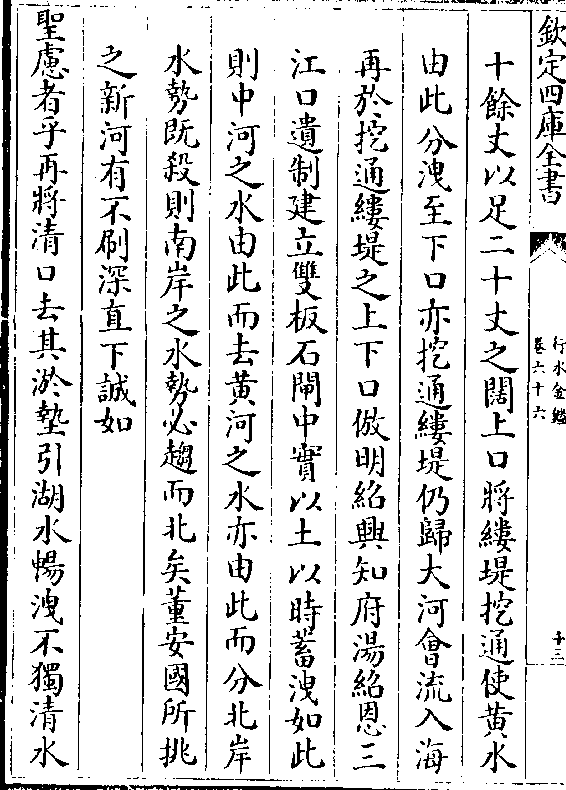 欽定四庫全書
行水金鑑
卷六十六
十三
十餘丈以足二十丈之闊上口將縷堤挖通使黃水
由此分洩至下口亦挖通縷堤仍歸大河會流入海
再於挖通縷堤之上下口倣明紹興知府湯紹恩三
江口遺制建立雙板石閘中實以土以時蓄洩如此
則中河之水由此而去黃河之水亦由此而分北岸
水勢既殺則南岸之水勢必趨而北矣董安國所挑
之新河有不刷深直下誠如
聖慮者乎再將清口去其淤墊引湖水暢洩不獨清水